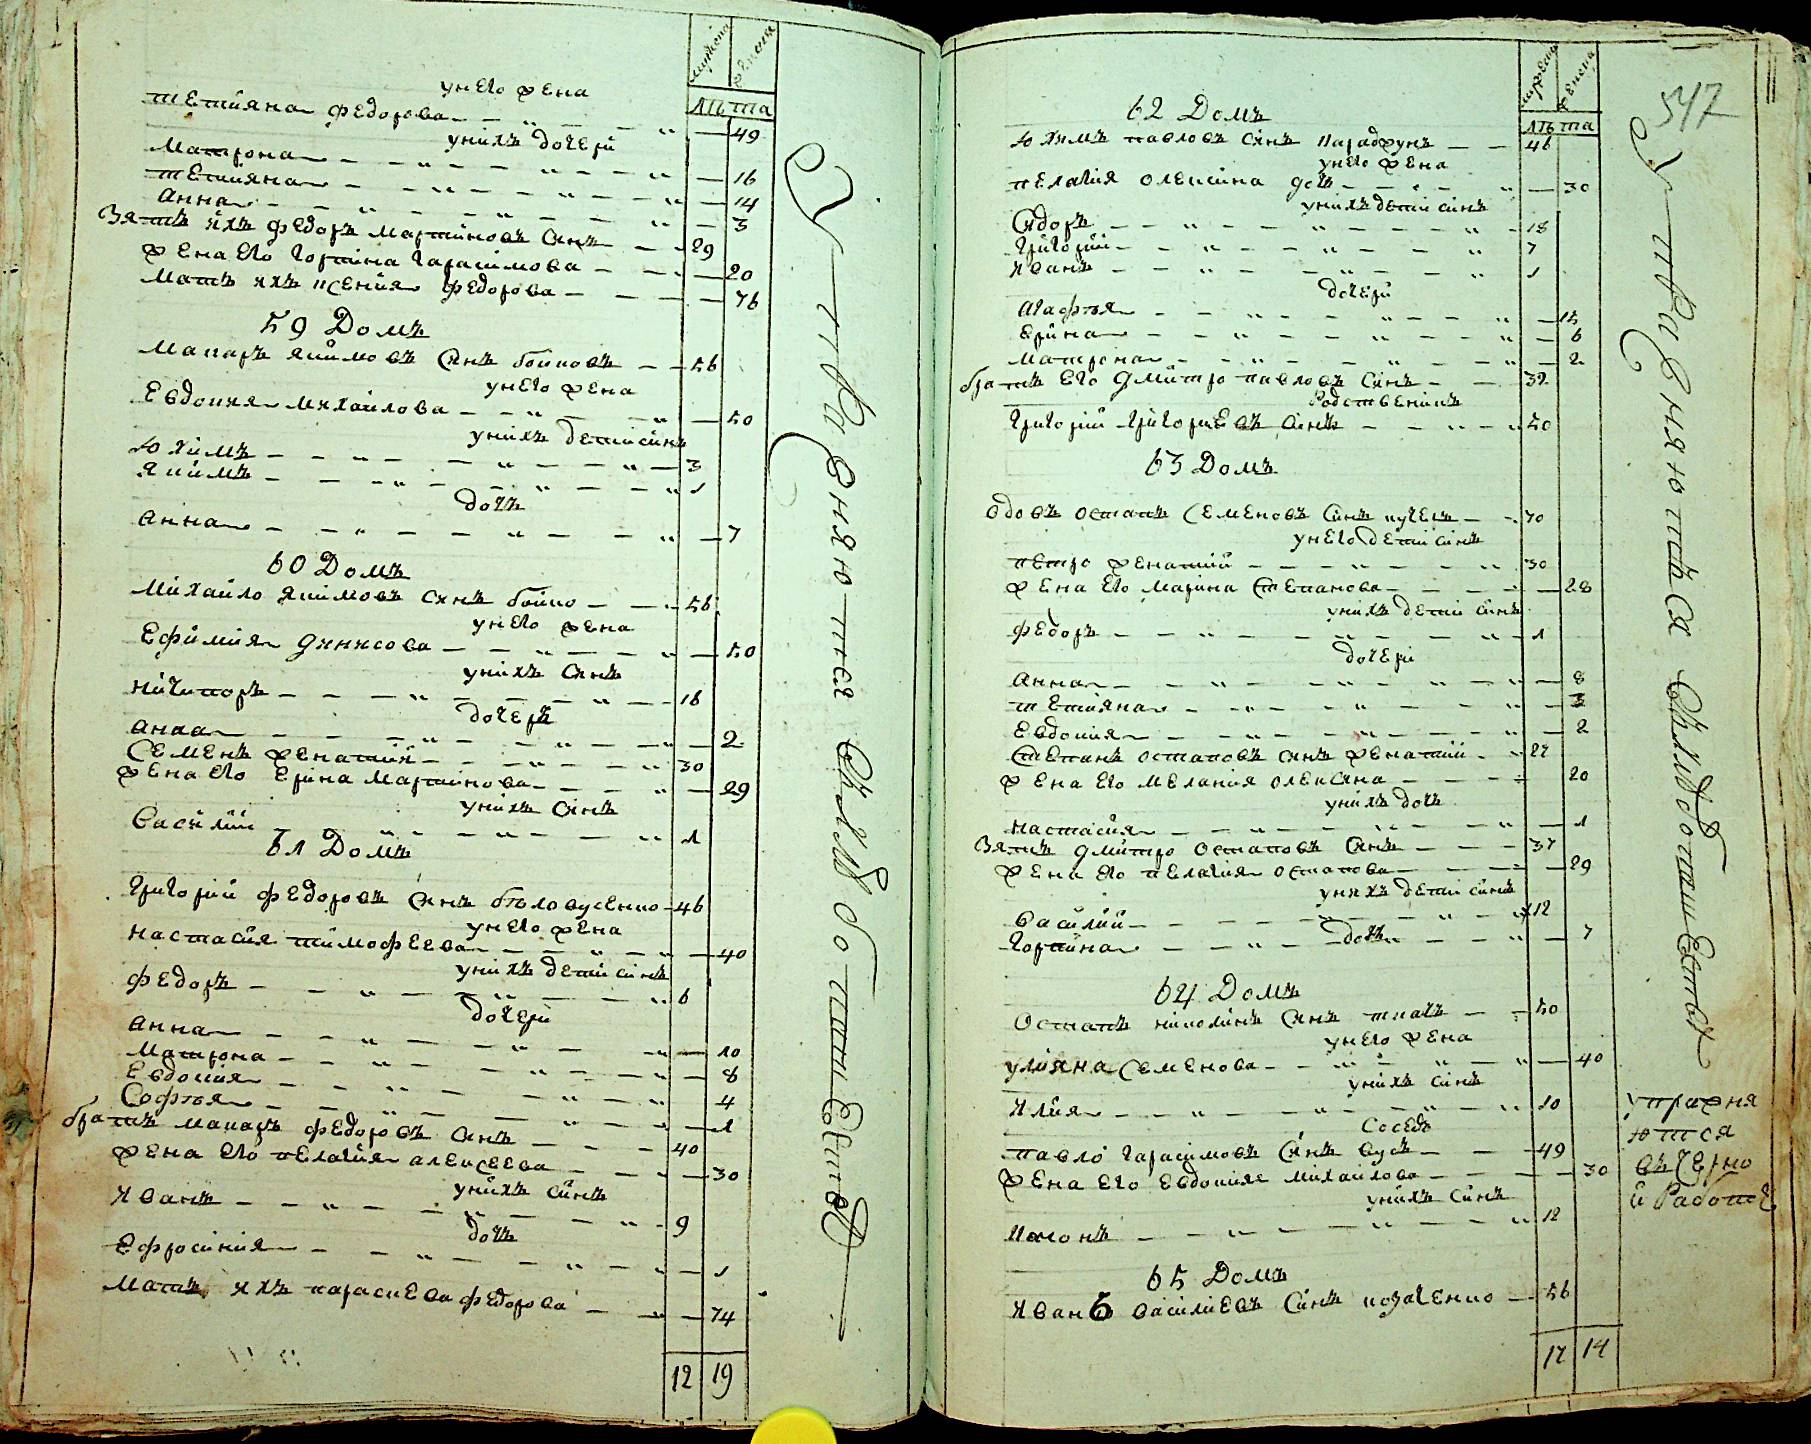 лѣта
унего жена
тетияна федорова 49
унихъ дочери
матрона 16
тетияна 14
анна 3
зять ихъ федоръ мартиновъ синъ 29
жена его горпина гарасимова 20
мать ихъ ксения федорова 76
59 Домъ
макаръ якимовъ синъ бойковъ 56
унего жена
Евдокия михайлова 50
унихъ дети синъ
юхимъ 3
якимъ 1
дочъ
анна 7
60 Домъ
михайло якимовъ синъ бойко 56
унего жена
Ефимия динисова 50
унихъ синъ
ничипоръ 16
дочеръ
анна 2
Семенъ женатий 30
жена его ерина мартинова 29
унихъ синъ
василий 1
61 Домъ
григорий федоровъ синъ бѣлоусенко 46
унего жена
настасия тимофеева 40
унихъ дети синъ
федоръ 6
дочери
анна 10
матрона 8
Евдокия 4
Софья 1
братъ макаръ федоровъ синъ 40
жена его пелагия алексеева 30
унихъ синъ
иванъ 9
дочъ
Ефросиния 1
мать ихъ параскева федорова 74
12 19
Упражняются
547
лѣта
62 Домъ
юхимъ павловъ синъ 46
унего жена
пелагия олексина дочъ 30
унихъ дети синъ
Сидоръ 18
григорий 7
иванъ 1
дочери
агафья 15
ерина 6
матрона 2
братъ его дмитро павловъ синъ 32
Родственикъ
григорий григориевъ синъ 50
63 Домъ
вдовъ остапъ Семеновъ синъ 70
унего дети синъ
петро женатий 30
жена его марина степанова 28
унихъ дети синъ
федоръ 1
дочери
анна 8
тетияна 3
евдокия 2
степанъ остаповъ синъ женатий 22
жена его мелания олексина 20
унихъ дочъ
настасия 1
зять дмитро остаповъ синъ 37
жена его пелагия остапова 29
унихъ дети синъ
василий 12
дочъ
горпина 7
64 Домъ
Остапъ николинъ синъ ткачъ 50
унего жена
улияна Семенова 40
унихъ синъ
илия 10
Соседъ
павло гарасимовъ синъ вусъ 49
жена его евдокия михайлова 30
унихъ синъ
12
65 Домъ
иванъ василиевъ синъ козаченко 56
17 14
Упражняются
упражня
ются
въ черно
й работѣ